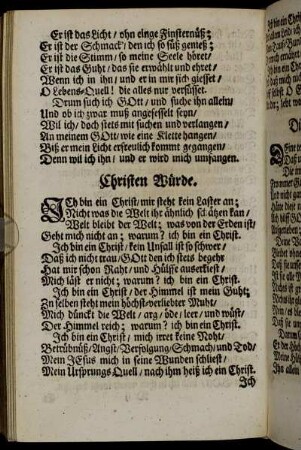 Er ist das Licht / ohn einge Finsternüß;
Er ist der Schmack / den ich so süß genieß;
Er ist die Stimm / so meine Seele höret /
Er ist das Guht / das sie erwählt und ehret /
Wenn ich in ihn / und er in mir sich giesset /
O Lebens-Quell! die alles nur versüsset.
Drum such ich GOtt / und suche ihn allein /
Und ob ich zwar muß angefesselt seyn /
Wil ich / doch stets mit suchen und verlangen /
An meinem GOtt wie eine Klette hangen /
Biß er mein Licht erfreulich kommt gegangen /
Denn wil ich ihn / und er wird mich umfangen.
Christen Würde.
ICh bin ein Christ / mir steht kein Laster an;
Nicht was die Welt ihr ähnlich schätzen kan /
Welt bleibt der Welt; was von der Erden ist /
Geht mich nicht an; warum? ich bin ein Christ.
Ich bin ein Christ / kein Unfall ist so schwer /
Daß ich nicht trau / GOtt den ich stets begehr
Hat mir schon Raht / und Hülffe auserkiest /
Mich läst er nicht; warum? ich bin ein Christ.
Ich bin ein Christ / der Himmel ist mein Guht;
Zu selben steht mein höchst-verliebter Muht /
Mich dünckt die Welt / arg / öde / leer / und wüst /
Der Himmel reich; warum? ich bin ein Christ.
Ich bin ein Christ / mich irret keine Noht /
Betrübnüß / Angst / Verfolgung / Schmach / und Tod /
Mein JEsus mich in seine Wunden schliest /
Mein Ursprungs Quell / nach ihm heiß ich ein Christ.
Ich